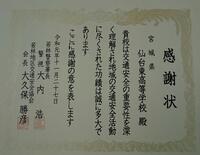 感謝状
宮城
仙台東高等学校 殿
貴校は交通安全の重要性を深
く理解され地域の交通安全活動
に尽くされた功績は誠に多大で
あります
ここに感謝の意を表します
令和元年十一月二十七日
若林警察署長
警視 大内 浩
若林地区交通安全協会
会長 大久保 勝彦